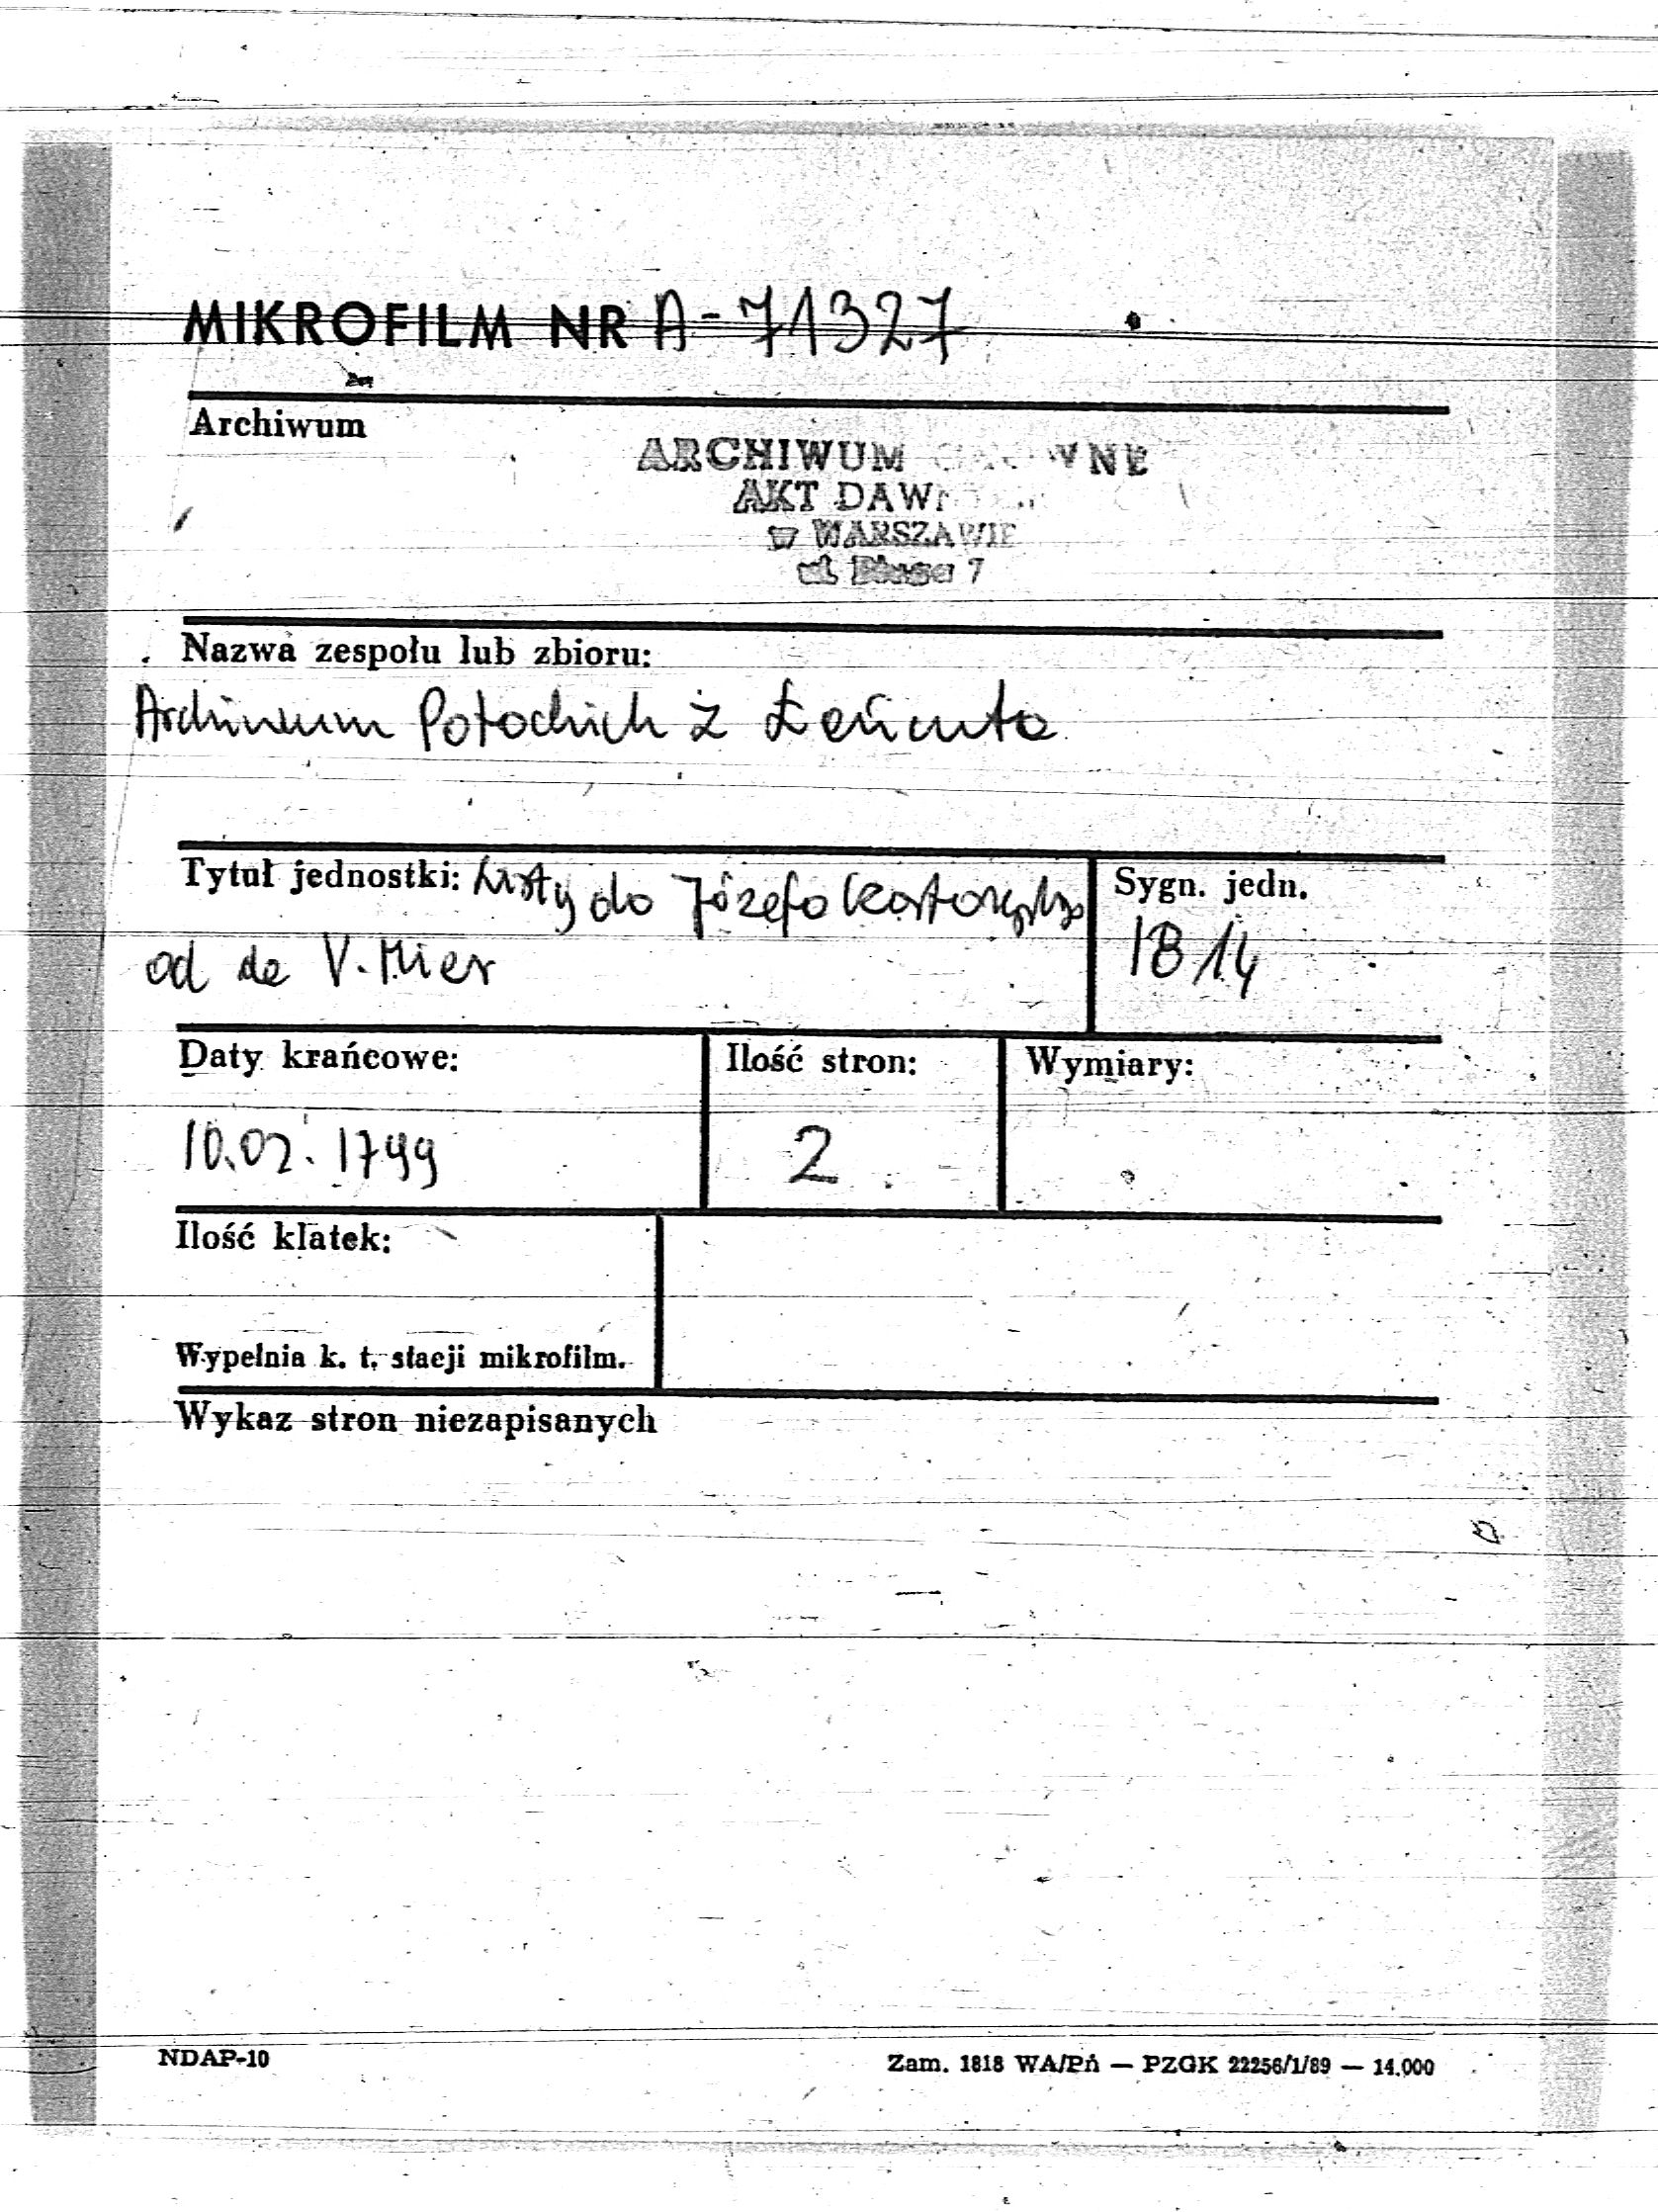 MIKROFILM NR A-71327
Archiwum
ARCHIWUM
AKT
w WARSZAWIE
ul. 7
Nazwa zespołu lub zbioru:
Archiwum Potockich z Łańcuta
Tytuł jednostki: Listy do Józefa
od de V. Mier
Sygn. jedn.
1814
Daty krańcowe:
10.02.1799
Ilość stron:
2
Wymiary:
Ilość klatek:
Wypełnia k. t. stacji mikrofilm.
Wykaz stron niezapisanych
NDAP-10
Zam. 1818 WA/Pń — PZGK 22256/1/89 — 14.000